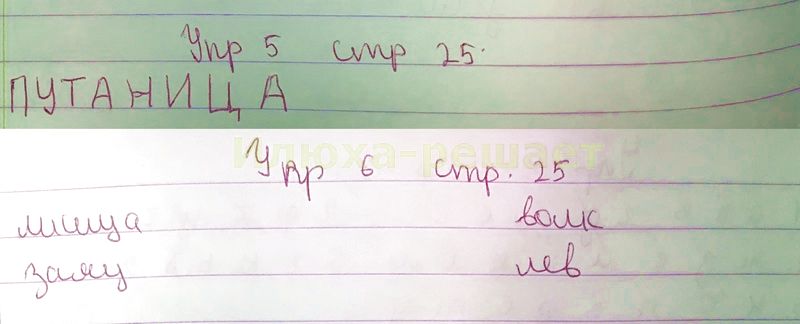 Упр 5 стр 25.
ПУТАНИЦА
Илюха-решает
Упр 6 стр. 25
лисица волк
заяц лев